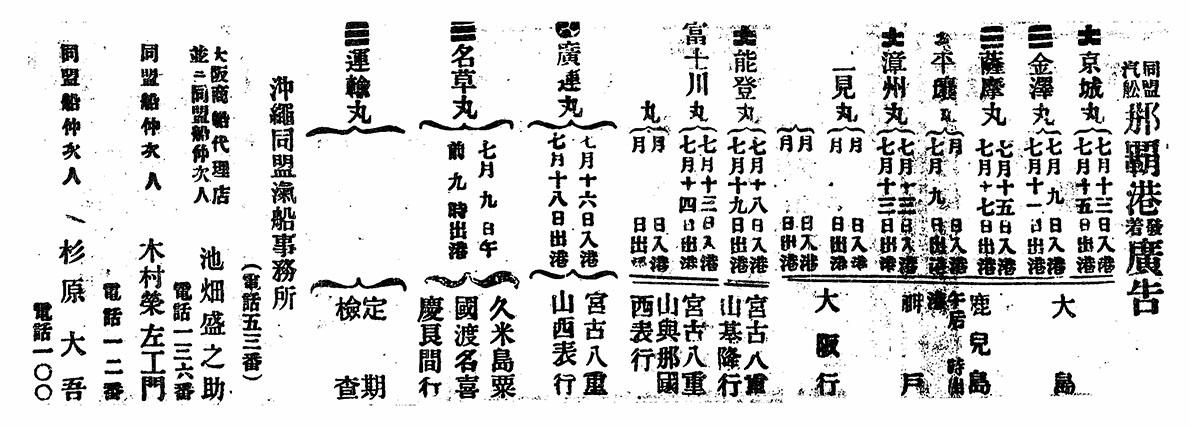 同盟汽船那覇港發着廣告
京城丸 七月十三日入港
七月十五日出港
金澤丸 七月九日入港
七月十一日出港
薩摩丸 七月十五日入港
七月十七日出港
平壤丸 月日入港
七月九日出港 午后時出港
漳州丸 七月十三日入港
七月十三日出港
一見丸 月日入港
月日出港
月日入港
月日出港
大島
鹿兒島
神戸
大阪行
能登丸 七月十八日入港
七月十九日出港
宮古八重
山基隆行
富士川丸 七月十三日入港
七月十四日出港
宮古八重
山與那國
西表行
廣運丸 七月十六日入港
七月十八日出港
宮古八重
山西表行
名草丸 七月九日午
前九時出港
久米島粟
國渡名喜
慶良間行
運輸丸
定期
檢查
沖繩同盟滊船事務所
(電話五三番)
大阪商船代理店
並ニ同盟船仲次人 池畑盛之助
電話一三六番
同盟船仲次人 木村榮左工門
電話一二番
同盟船仲次人 杉原大吾
電話一〇〇